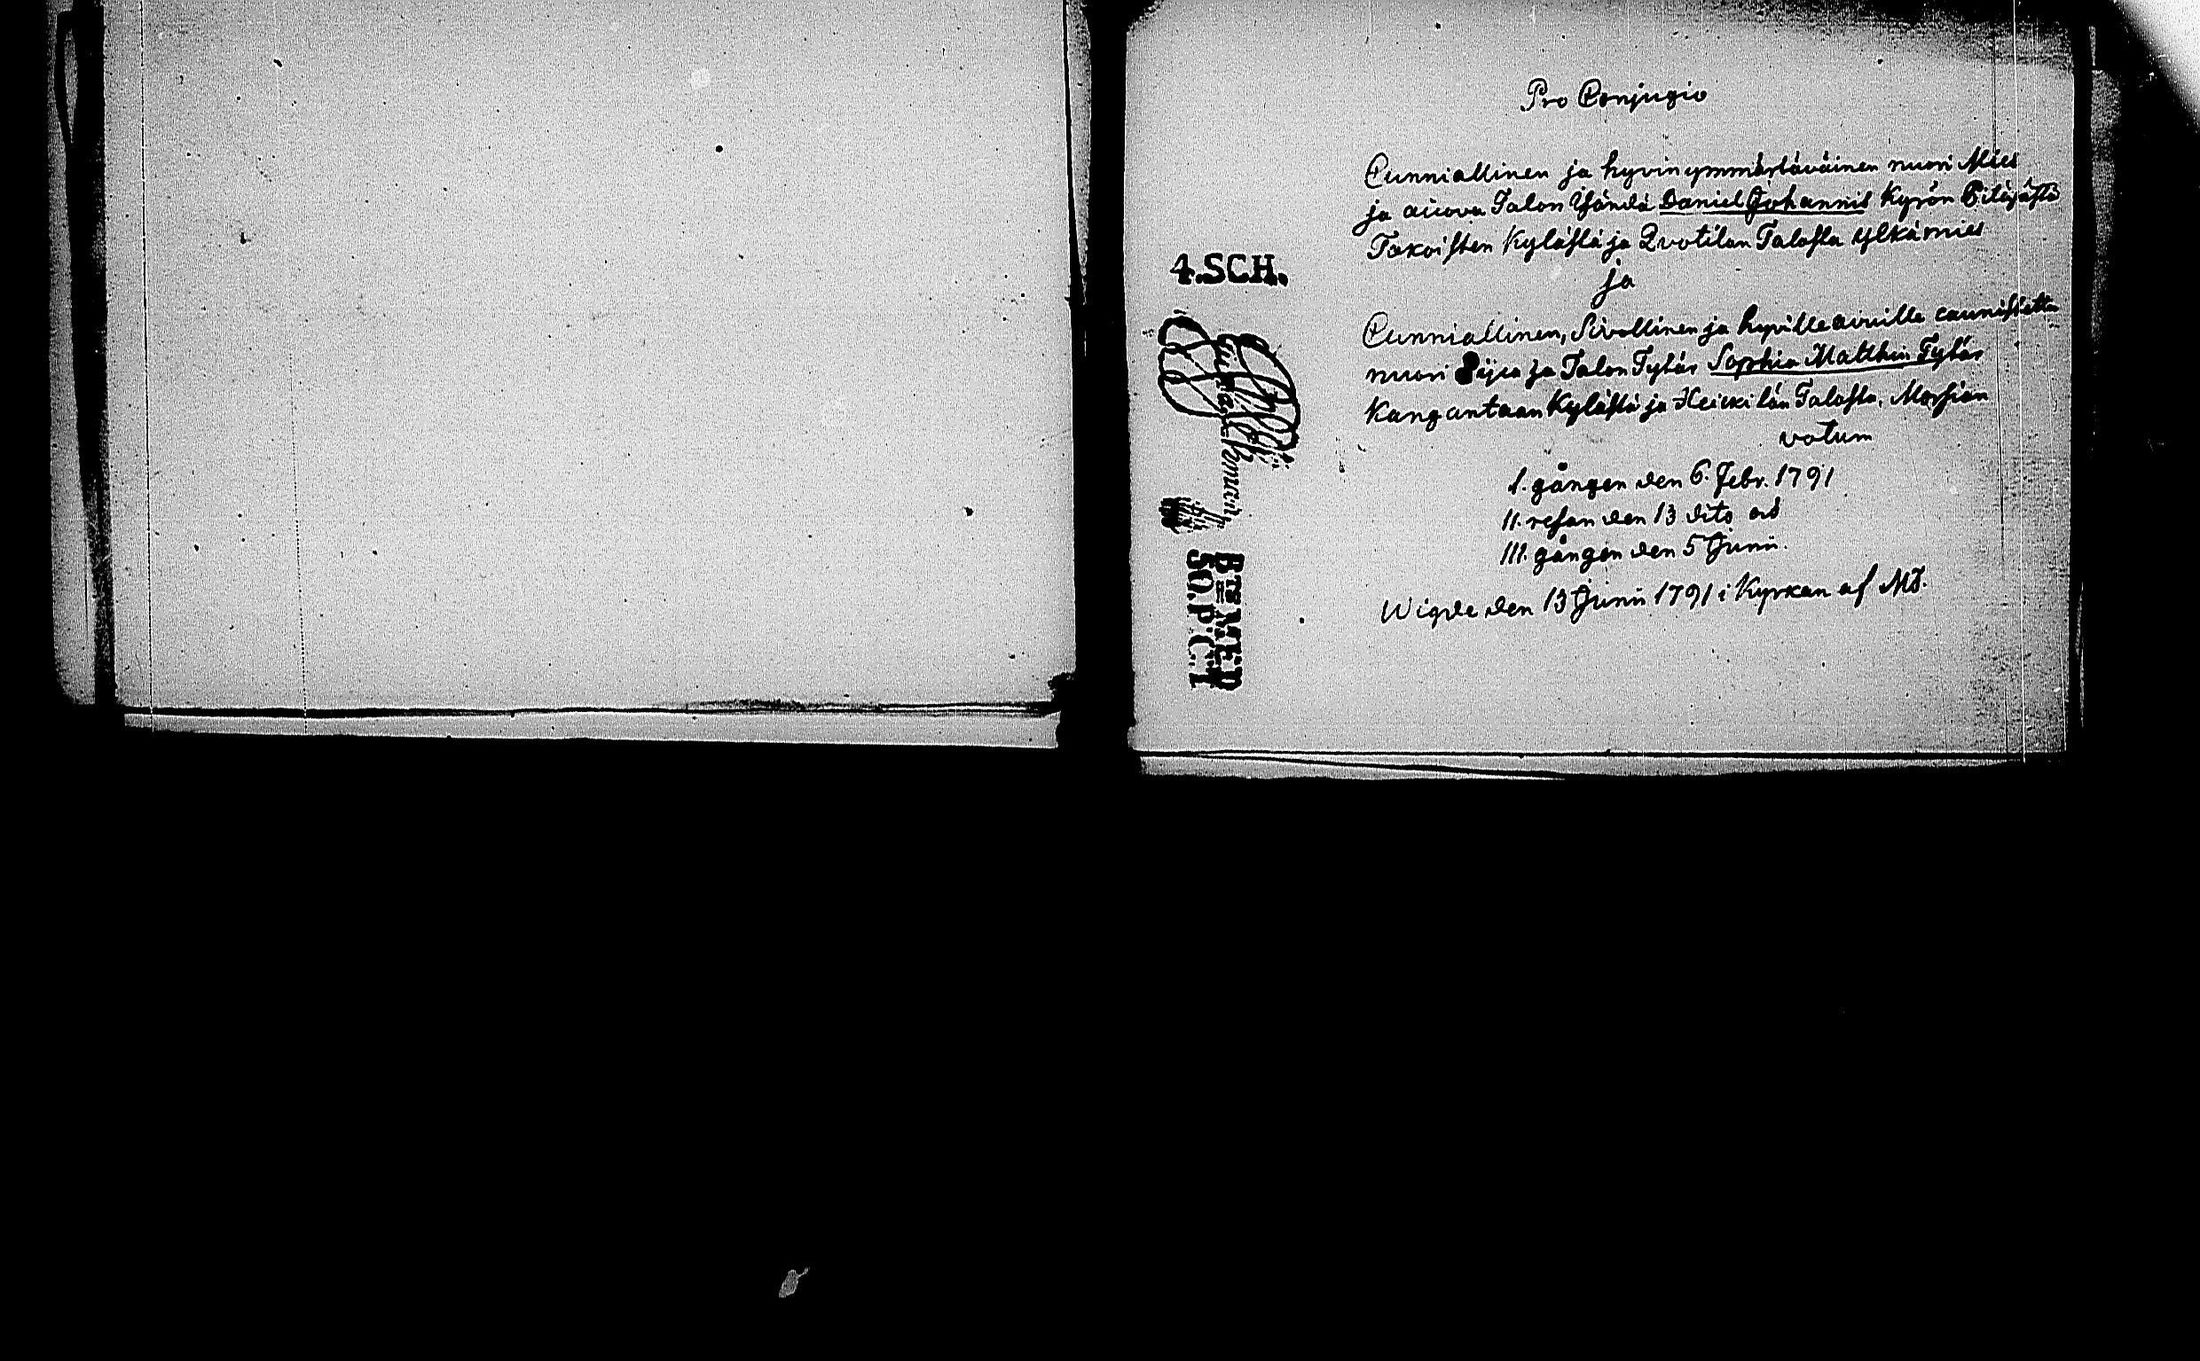 Pro Conjugio
Cunniallinen ja hyvin ymmärtäväinen nuori Mies
ja aicova Talon Isändä Daniel Johannis Kyrön Pitäjästä
Takoisten Kylästä ja Qvotilan Talosta ylkämies
ja
Cunniallinen, Sivollinen ja hyville avuille caunistettu
nuori Pijca ja Talon Tytär Sophia Matthin Tytär
Kangantaan Kylästä ja Heickilän Talosta, Morsian
votum
I. gången den 6. Febr. 1791
II. resan den 13 dito od
III. gången den 5 Junii.
Wigde den 13 Junii 1791 i Kyrkan af MT.
4.SCH.
BTE MED
SO.P.C.T